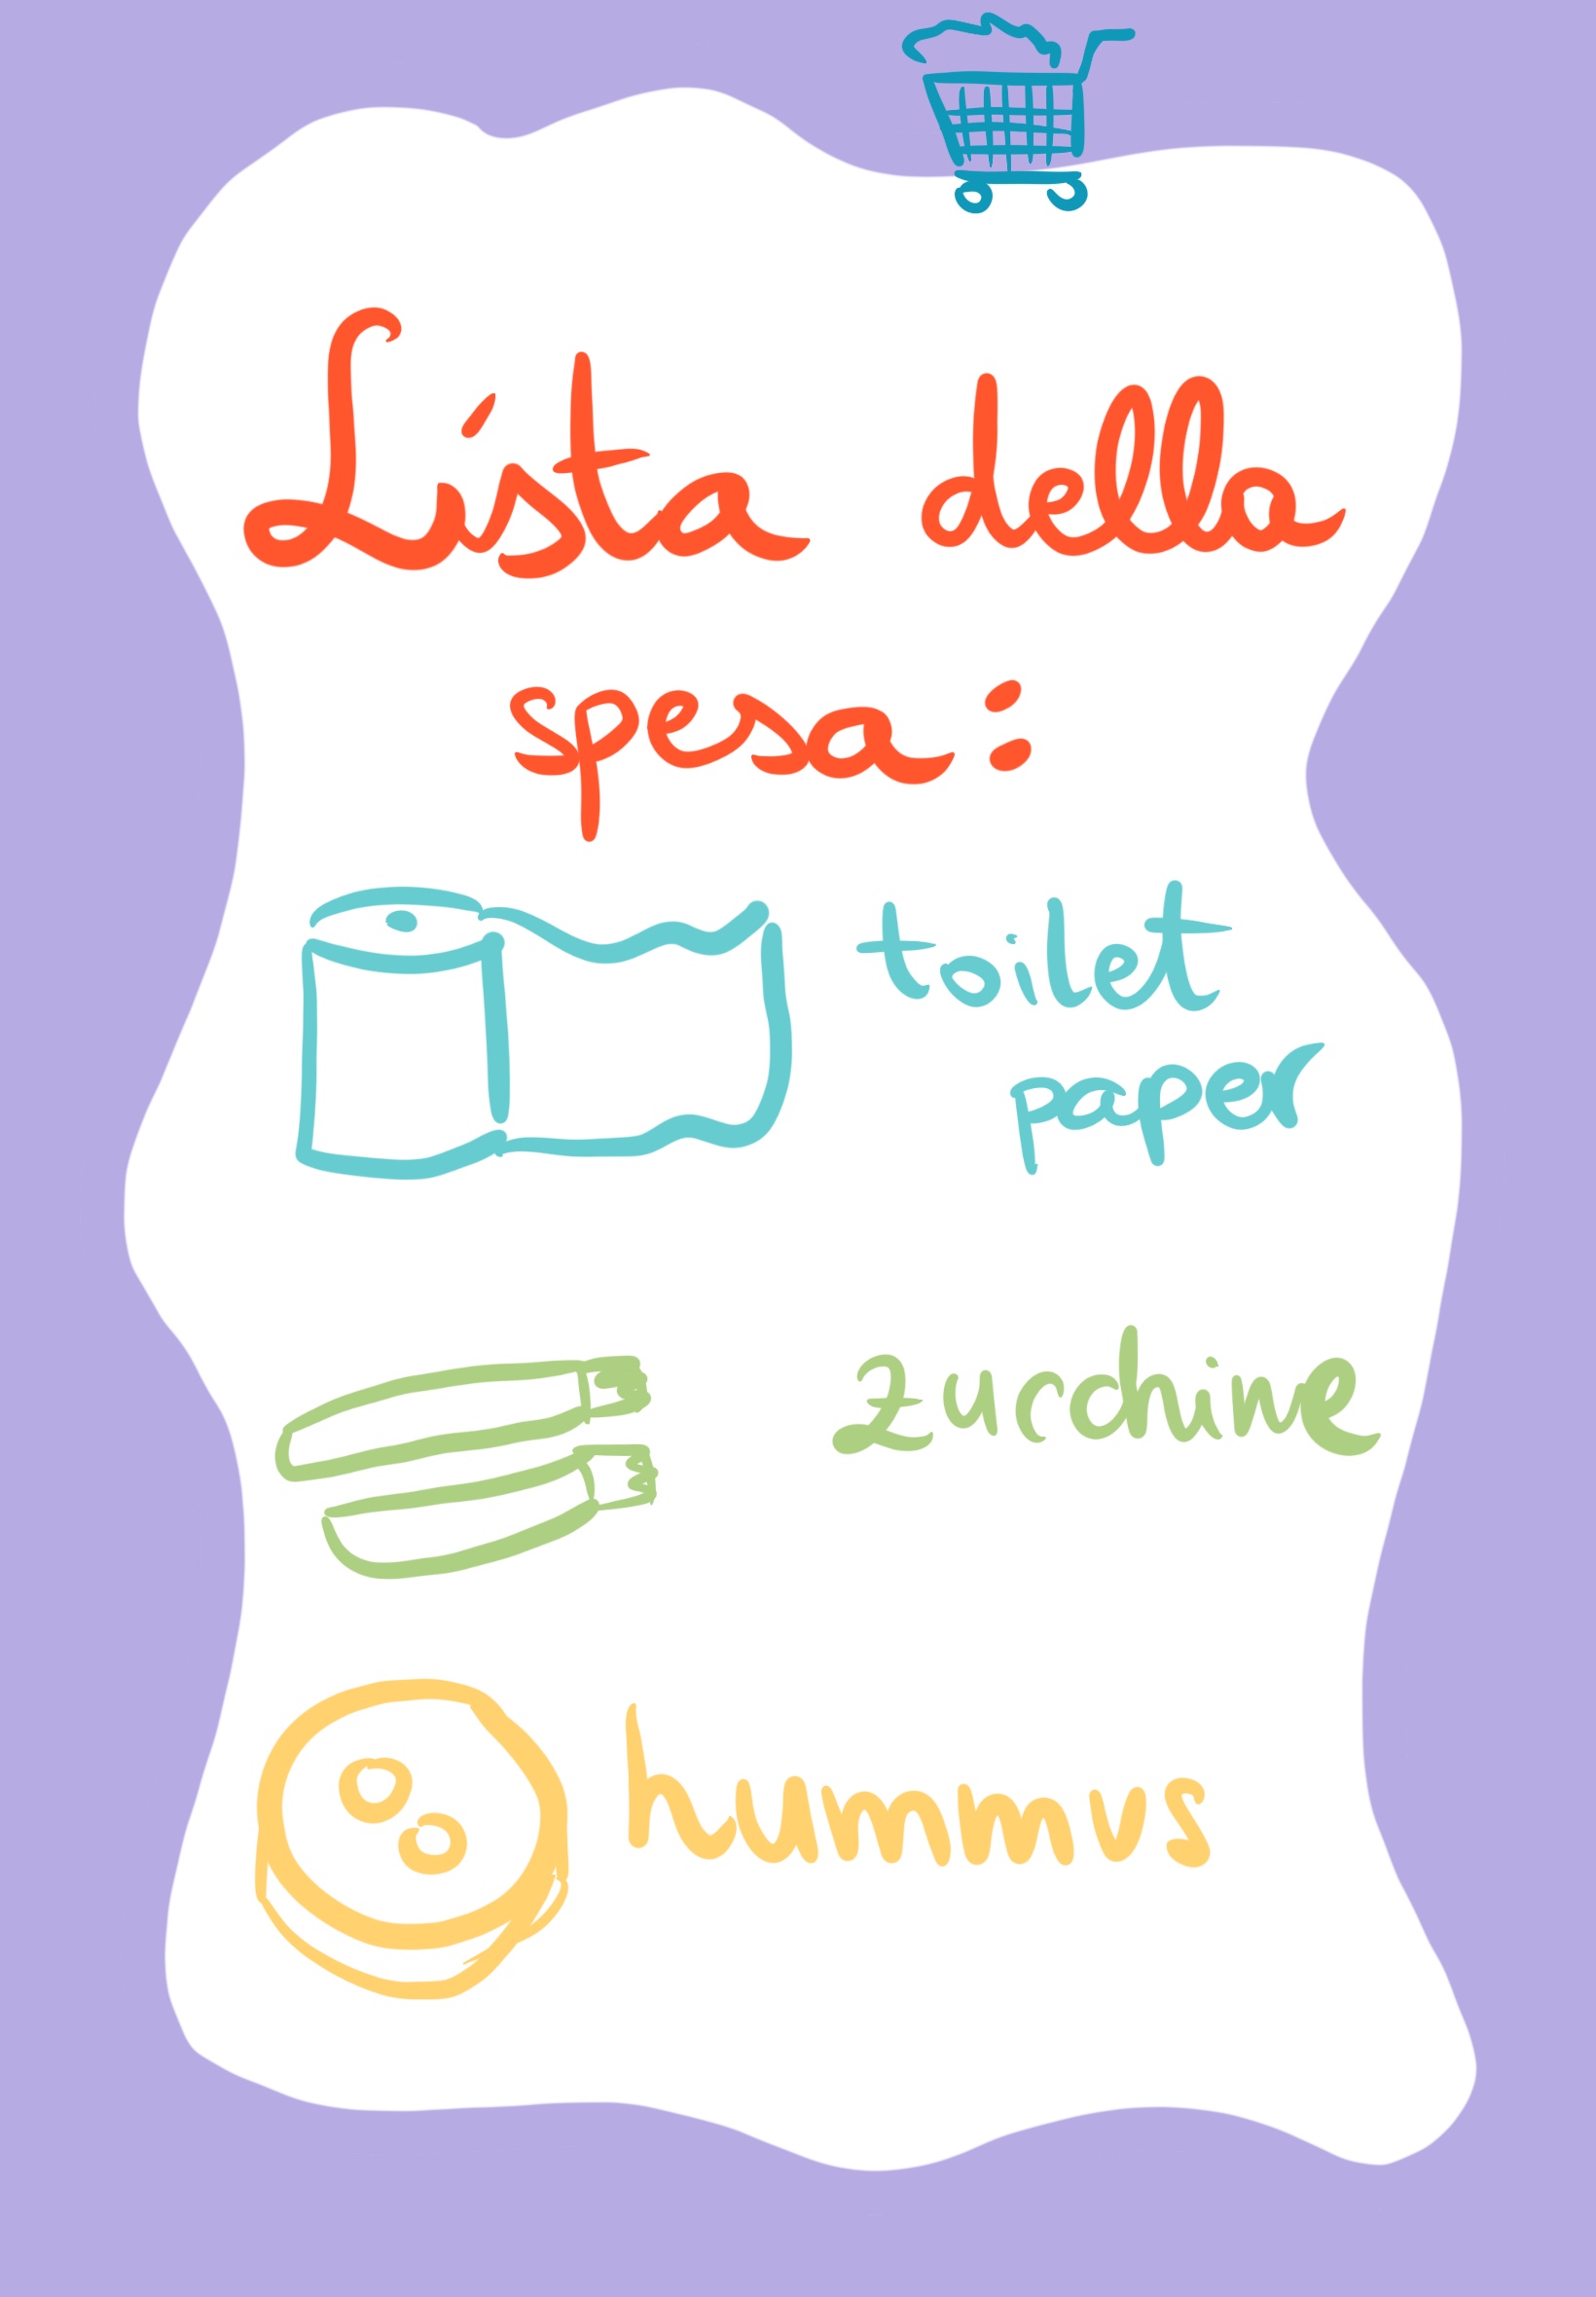 Lista della
spesa:
toilet
paper
zucchine
hummus